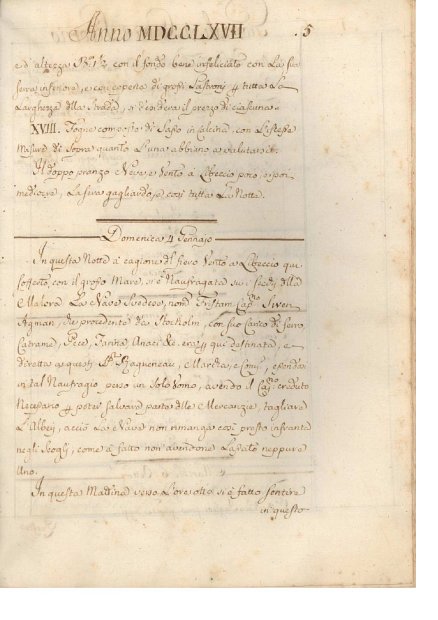 Anno MDCCLXVII 5
ed altezza Br. 1½ con il fondo bene infelicitato con La sua
serra inferiore, e coi coperto di grossi Lastroni p tutta La
Larghezza della Strada, si d il prezzo di ciascuna.
XVIII. Fogne composto di Sasso in calcina con L'istesse
misure di Sopra quanto L'una abbiano a valutarsi.
Il doppo pranzo Neve e Vento a Libeccio poco, e poi
mediocre, La sera gagliardo, e così tutta La Notte.
Domenica 4 Gennajo
In questa Notte à cagione del fiero Vento a Libeccio qui
sofferto, con il grosso Mare, si è Naufragata su i Scogli della
Meloria La Nave Svedese, nom. Tristam Cap.no Siven
Agman, che procedente da Stocholm, con suo Carico di ferro,
Catrame, Pece, Tavole, &c. era p qui destinata, e
diretta a questi SS.ri Ragueneau, e Comp., essendosi
in tal Naufragio perso un solo Vomo, avendo il Cap.no creduto
Necessario p poter salvare parte delle Mercanzie, tagliare
L'Alberi, acciò La Nave non rimanga così presto infranta
negli Scogli, come à fatto non avendone Lasciato neppure
Uno.
In questa Mattina verso L'ore sotto si è fatto sentire
in questo